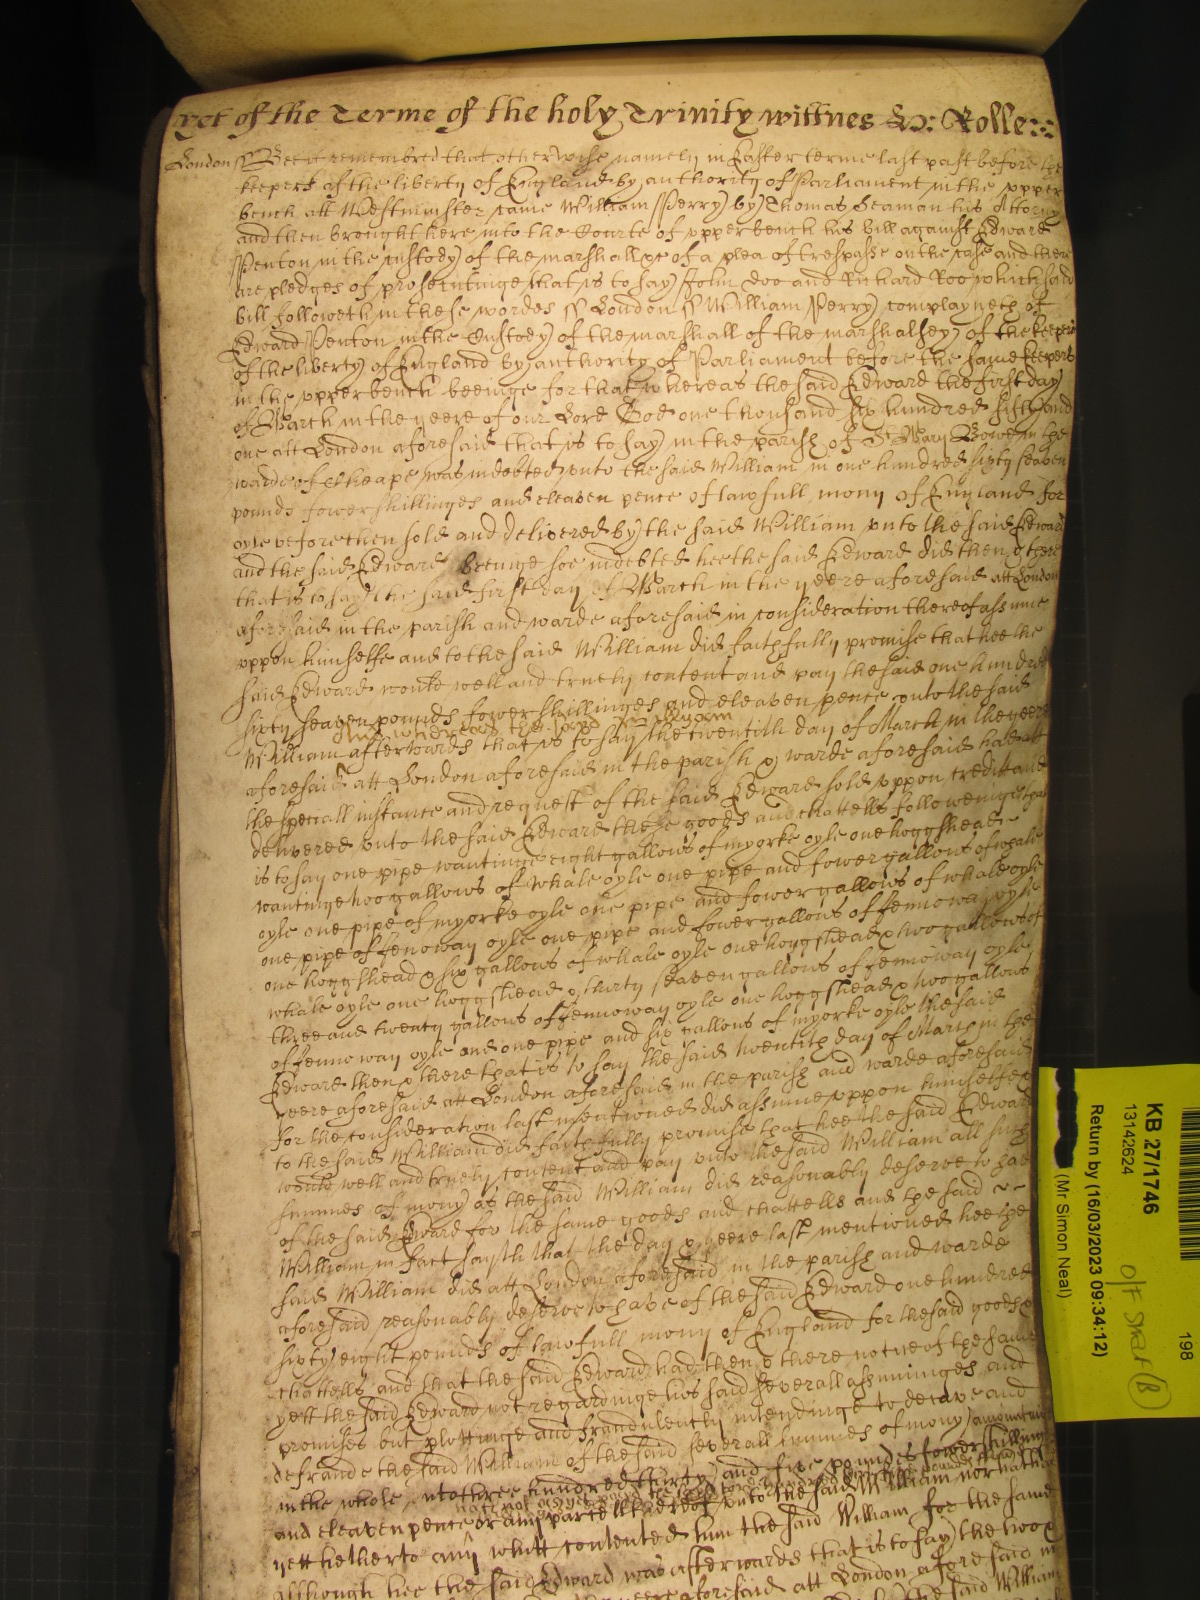 yet of the Terme of the holy Trinity wittnes H: Rolle::
London ss Bee it remembred that otherwise namely in Easter terme last past before the
keepers of the liberty of England by authority of Parliament in the upper
bench att Westminster came William Perry by Thomas Seaman his Attorny
and then brought here into the Courte of upper bench his bill against Edward
Penton in the custody of the marshall &c of a plea of trespasse on the case and there
are pledges of prosecutinge that is to say John Doo and Richard Roo which said
bill followeth in these wordes ss London ss William Perry complayneth of
Edward Penton in the Custody of the marshall of the marshalsey of the keepers
of the liberty of England by authority of Parliament before the same keepers
in the upper bench beeinge for that whereas the said Edward the first day
of March in the yeere of our Lord God one thousand six hundred fifty and
one att London aforesaid that is to say in the parish of St Mary Bowe in the
warde of Cheape was indebted unto the said William in one hundred sixty seaven
pounds fower shillinges and eleaven pence of lawfull mony of England for
oyle before then sold and delivered by the said William unto the said Edward
and the said Edward beeinge soe indebted hee the said Edward did then & there
that is to say the said first day of March in the yeere aforesaid att London
aforesaid in the parish and warde aforesaid in consideration thereof assume
uppon himselfe and to the said William did faithfully promise that hee the
said Edward would well and truely content and pay the said one hundred
sixty seaven pounds fower shillinges and eleaven pence unto the said
And whereas the said William
William afterwards that is to say the twentith day of March in the yeere
aforesaid att London aforesaid in the parish & warde aforesaid had att
the speciall instance and request of the said Edward sold uppon creditt and
delivered unto the said Edward these goods and chattells followeinge that
is to say one pipe wantinge eight gallons of myorke oyle one hoggshead
wantinge twoo gallons of whale oyle one pipe and fower gallons of whale
oyle one pipe of myorke oyle one pipe and fower gallons of whale oyle
one pipe of fenoway oyle one pipe and fower gallons of fennoway oyle
one hoggshead & six gallons of whale oyle one hoggshead & twoo gallons of
whale oyle one hoggshead & thirty seaven gallons of fennoway oyle
three and twenty gallons of fennoway oyle one hoggshead & twoo gallons
of fennoway oyle and one pipe and six gallons of myorke oyle the said
Edward then & there that is to say the said twentith day of March in the
yeere aforesaid att London aforesaid in the parish and warde aforesaid
for the consideration last mentioned did assume uppon himselfe &
to the said William did faithfully promise that hee the said Edward
would well and truely content and pay unto the said William all such
summes of mony as the said William did reasonably deserve to have
of the said Edward for the same goods and chattells and the said
William in fact sayth that the day & yeere last mentioned hee the
said William did att London aforesaid in the parish and warde
aforesaid reasonably deserve to have of the said Edward one hundred
sixty eight pounds of lawfull mony of England for the said goods &
chattells and that the said Edward had then & there notice of the same
yett the said Edward not regardinge his said severall assuminges and
promises but plottinge and fraudulently intendinge to deceave and
defraude the said William of the said severall summes of mony amountinge
in the whole unto three hundred thirty and five pounds fower shillinges
and eleaven pence or any parcell thereof unto the said William nor hath
yett hetherto any whitt contented him the said William for the same
although hee the said Edward was afterwards that is to say the twoo
yeere aforesaid att London aforesaid in
the said William
KB 27/1746
13142624
Return by (16/03/2023 09:34:12)
(Mr Simon Neal)
198